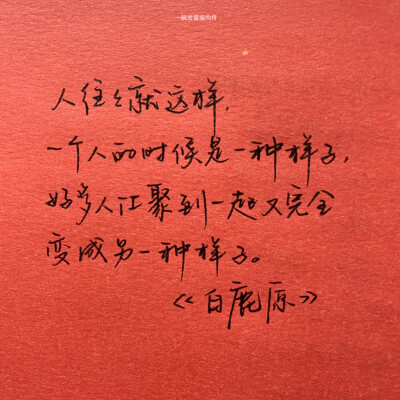 人往々就这样,
一个人的时候是一种样子,
好多人汇聚到一起又完全
变成另一种样子。
《白鹿原》